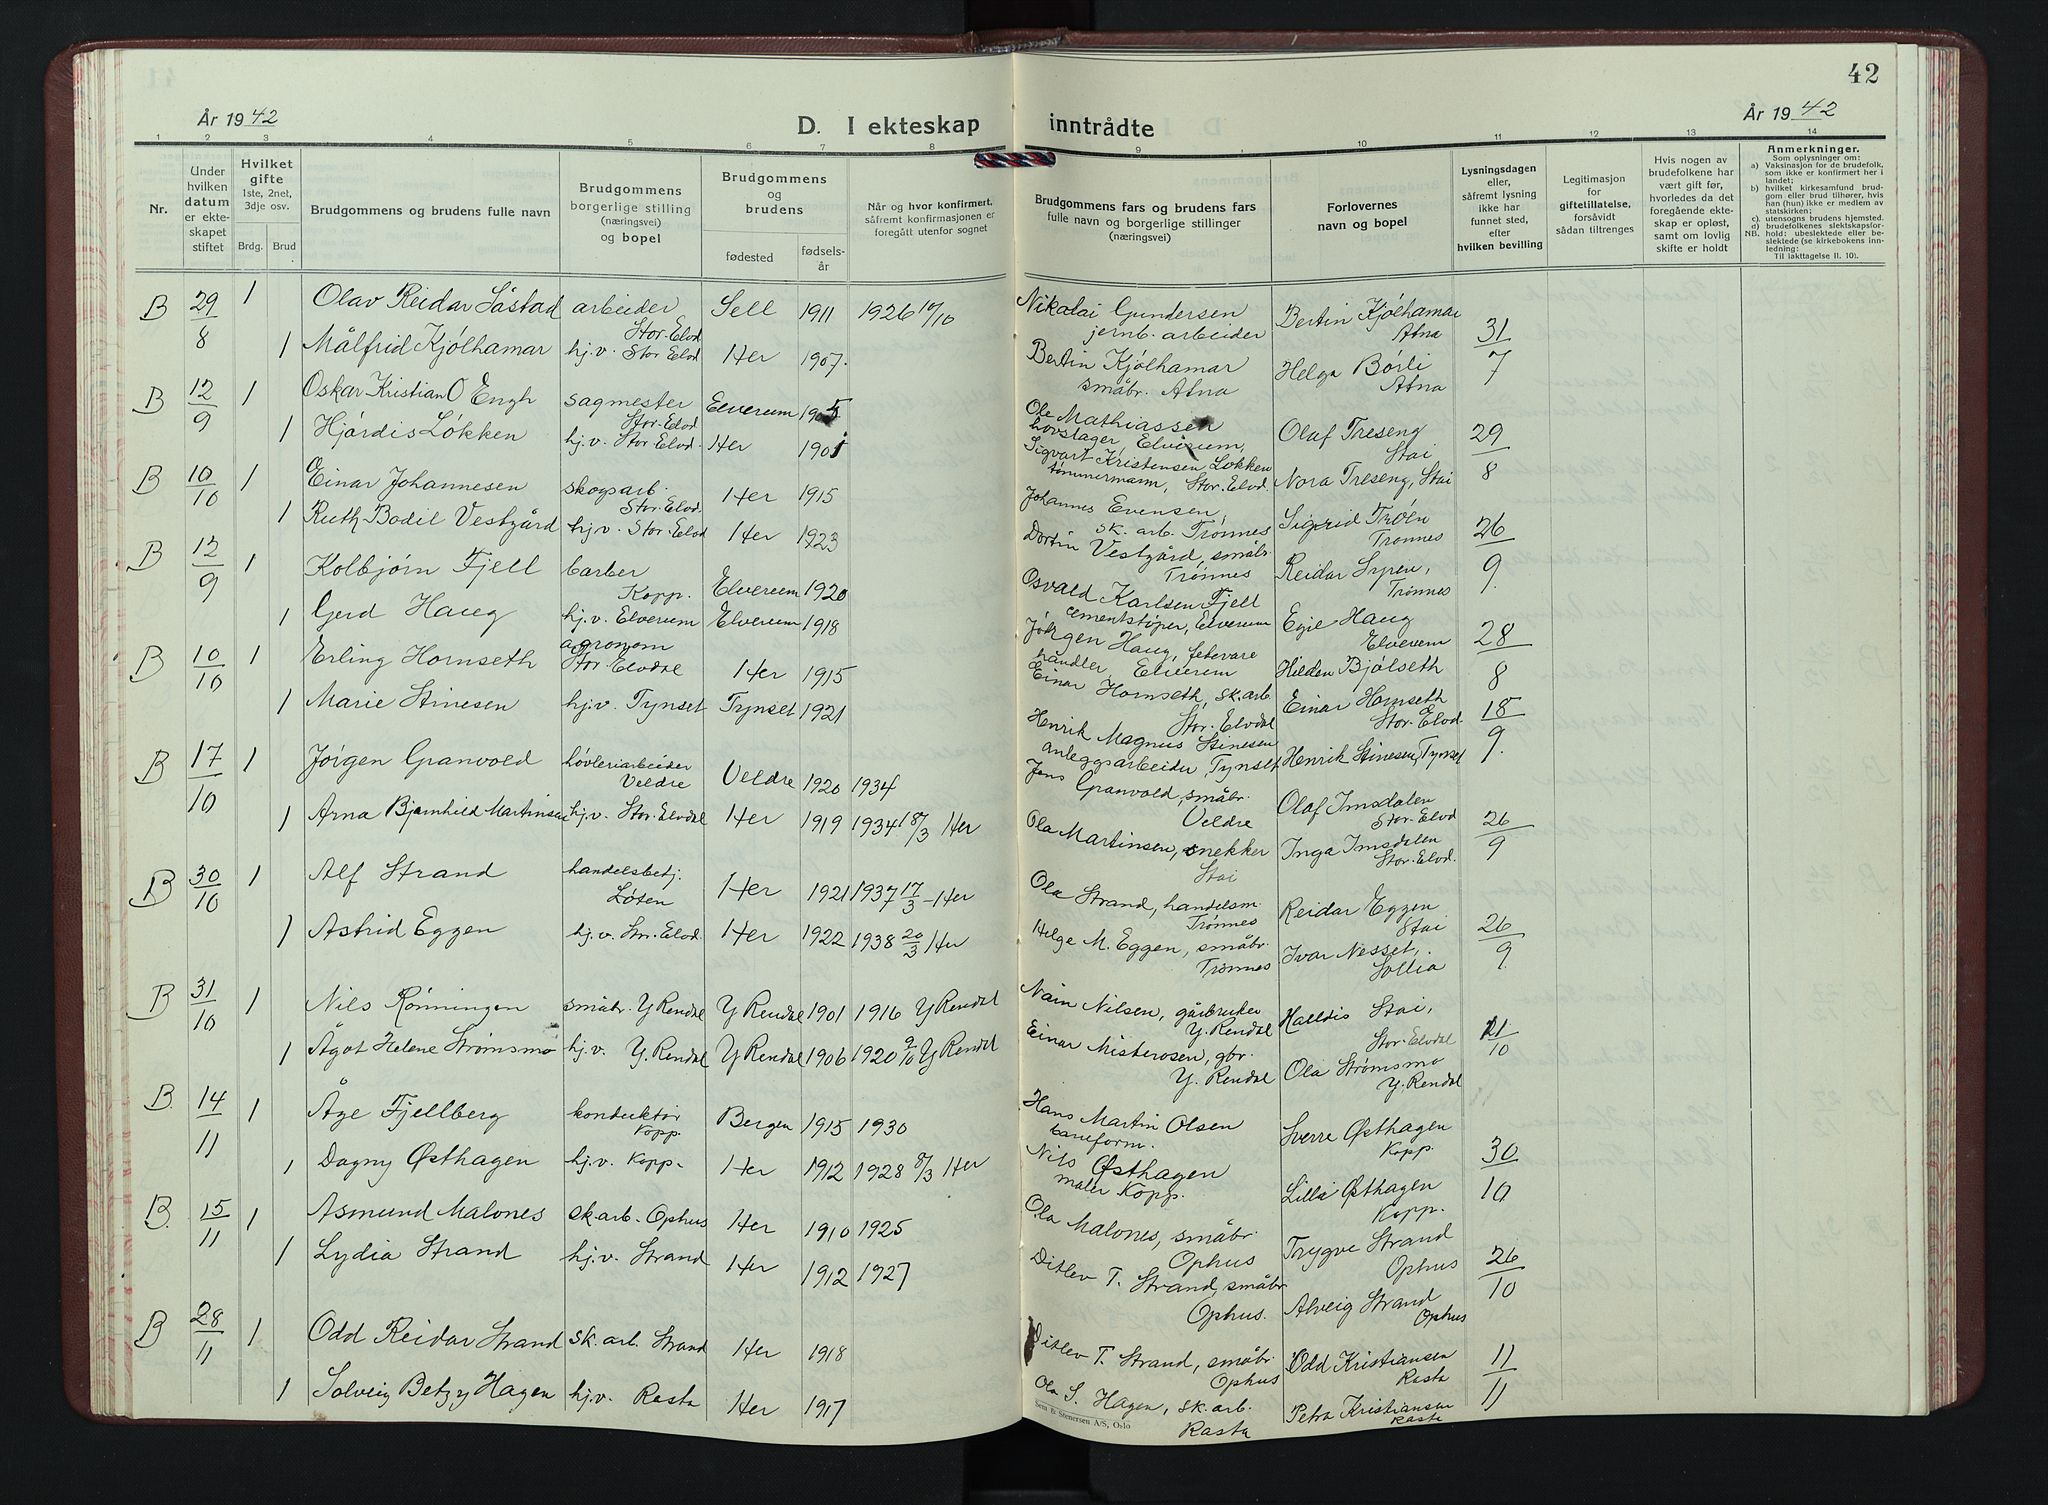 42
År 1942
År 1942
D. I ekteskap inntrådte
1 2 3 4 5 6 7 8 9 10 11 12 13 14
Nr.
Under hvilken datum er ekteskapet stiftet
Hvilket gifte
1ste, 2net, 3dje osv.
Brdg. Brud
Brudgommens og brudens fulle navn
Brudgommens borgerlige stilling (næringsvei) og bopel
Brudgommens og brudens
fødested
fødselsår
Når og hvor konfirmert, såfremt konfirmasjonen er foregått utenfor sognet
Brudgommens fars og brudens fars fulle navn og borgerlige stillinger (næringsvei)
Forlovernes navn og bopel
Lysningsdagen eller, såfremt lysning ikke har funnet sted, efter hvilken bevilling
Legitimasjon for giftetillatelse, forsåvidt sådan tiltrenges
Hvis nogen av brudefolkene har vært gift før, hvorledes da det foregående ekteskap er opløst, samt om lovlig skifte er holdt
Anmerkninger.
Som oplysninger om:
a) Vaksinasjon for de brudefolk, som ikke er konfirmert her i landet;
b) hvilket kirkesamfund brudgom eller brud tilhører, hvis han (hun) ikke er medlem av statskirken;
c) utensogns brudens hjemsted.
d) brudefolkenes slektskapsforhold: ubeslektede eller beslektede (se kirkebokens innledning:
NB. Til iakttagelse II. 10).
B 29/8 1 Olav Reidar Såstad arbeider Stor-Elvd Sell 1911 1926 10 Nikolai Gundersen jernb. arbeider Bertin Kjølhamar Atna 31/7
1 Målfrid Kjølhamar hj.v. Stor Elvd Her 1907. Bertin Kjølhamar småbr. Atna Helga Børli Atna
B 12/9 1 Oskar Kristian O Engh sagmester Stor-Elvd Elverum 1905 Ole Mathiassen hovslager, Elverum, Olaf Treseng Stai 29/8
1 Hjørdis Løkken hj.v. Stor Elvd. Her 1901 Sigvart Kristensen Løkken tømmermann, Stor-Elvd. Nora Treseng, Stai
B 10/10 1 Einar Johannesen skogsarb. Stor-Elvd. Her 1915 Johannes Evensen, sk. arb. Trønnes Sigrid Trøen Trønnes 26/9.
1 Ruth Bodil Vestgård hj.v. Stor-Elvd Her 1923 Dortin Vestgård, småbr. Trønnes Reidar Trønnes
B 12/9 1 Kolbjørn Fjell barber Kopp. Elverum 1920 Osvald Karlsen Fjell cementstøper, Elverum Egil Haug Elverum 28/8
1 Gerd Haug hj.v. Elverum Elverum 1918 Jørgen Haug, fetevarehandler, Elverum Hilden Bjølseth
B 10/10 1 Erling Hornseth agronom Stor-Elvdal Her 1915 Einar Hornseth, sk.arb. Stor-Elvdal Einar Hornseth Stor-Elvd. 18/9.
1 Marie Stinesen hj.v. Tynset Tynset 1921 Henrik Magnus Stinesen anleggsarbeider, Tynset Henrik Stinesen, Tynset
B 17/10 1 Jørgen Granvold høvleriarbeider Veldre Veldre 1920 1934 Jens Granvold, småbr. Veldre Olaf Imsdalen Stor-Elvd 26/9
1 Arna Bjørnhild Martinsen hj.v. Stor-Elvdal Her 1919 1934 18/3 Her Ola Martinsen, snekker Stai Inga Imsdalen Stor-Elvd.
B 30/10 1 Alf Strand handelsbetj. Løten Her 1921 1937 17/3 - Her Ola Strand, handelsm. Trønnes Reidar Eggen Stai 26/9.
1 Astrid Eggen hj.v. Stor-Elvd. Her 1922 1938 20/3 Her Helge M. Eggen, småbr. Trønnes Ivar Nesset, Sollia
B 31/10 1 Nils Rønningen småbr. Y Rendal Y Rendal 1901 1916 Y Rendal Nilsen, gårbruker Y. Rendal Halldis Stai, Stor-Elvdal 21/10
1 Ågot Helene Strømsmo hj.v. Y. Rendal Y Rendal 1906 1920 9/10 Y Rendal Einar Misterosen, gbr. Y. Rendal Ola Strømsmo Y. Rendal
B. 14/11 1 Åge Fjellberg konduktør Kopp. Bergen 1915 1930 Hans Martin Olsen baneform. Sverre Østhagen Kopp. 30/10
1 Dagny Østhagen hj.v. Kopp. Her 1912 1928 8/3 Her Nils Østhagen maler Kopp. Lilli Østhagen Kopp.
B. 15/11 1 Asmund Malones sk.arb. Ophus Her 1910 1925 Ola Malones, småbr. Ophus Trygve Strand Ophus 26/10
1 Lydia Strand hj.v. Strand Her 1912 1927 Ditlev T. Strand, småbr Ophus. Alveig Strand Ophus
B 28/11 1 Odd Reidar Strand sk. arb. Strand Her 1918 Ditlev T. Strand, småbr. Ophus Odd Kristiansen Rasta 11/11
1 Solveig Betzy Hagen hj.v. Rasta Her 1917 Ola S. Hagen, sk.arb. Rasta Petra Kristiansen Rasta
Sem & Stenersen A/S, Oslo